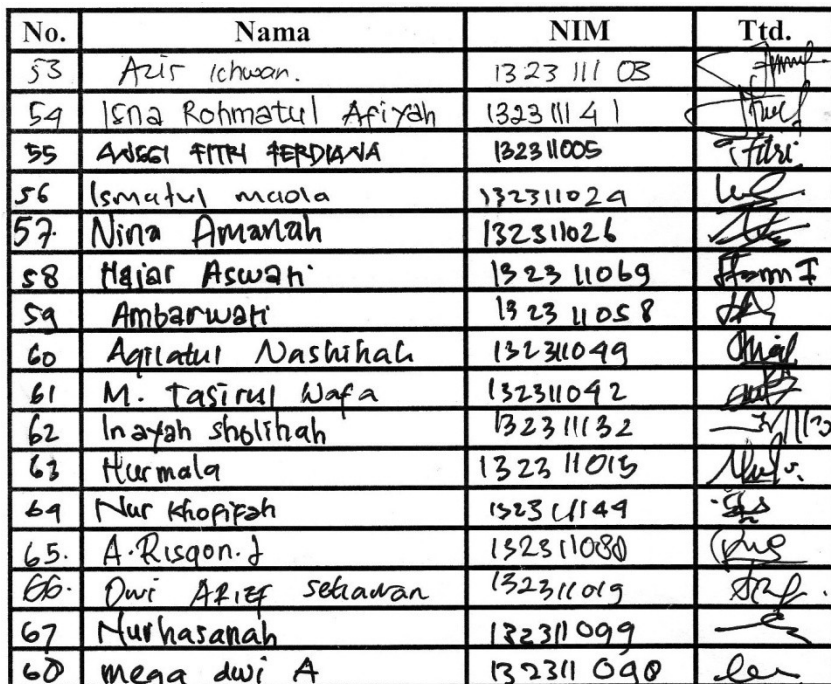 No. Nama NIM Ttd.
53 Azis Ichwan. 132311103
54 Isna Rohmatul Afiyah 132311141
55 ANGGI FITRI FERDIANA 132311005 Fitri
56 Ismatul maola 132311024
57. Nina Amanah 132311026
58 Hajar Aswati 132311069
59 Ambarwati 132311058
60 Aqilatul Nashihah 132311049
61 M. Tasirul Wafa 132311042
62 Inayah sholihah 132311132
63 Hurmala 132311015
64 Nur Khofifah 132311144
65. A. Risqon. J 132311080
66. Dwi ARIEF setiawan 132311019
67 Nurhasanah 132311099
68 mega dwi A 132311090